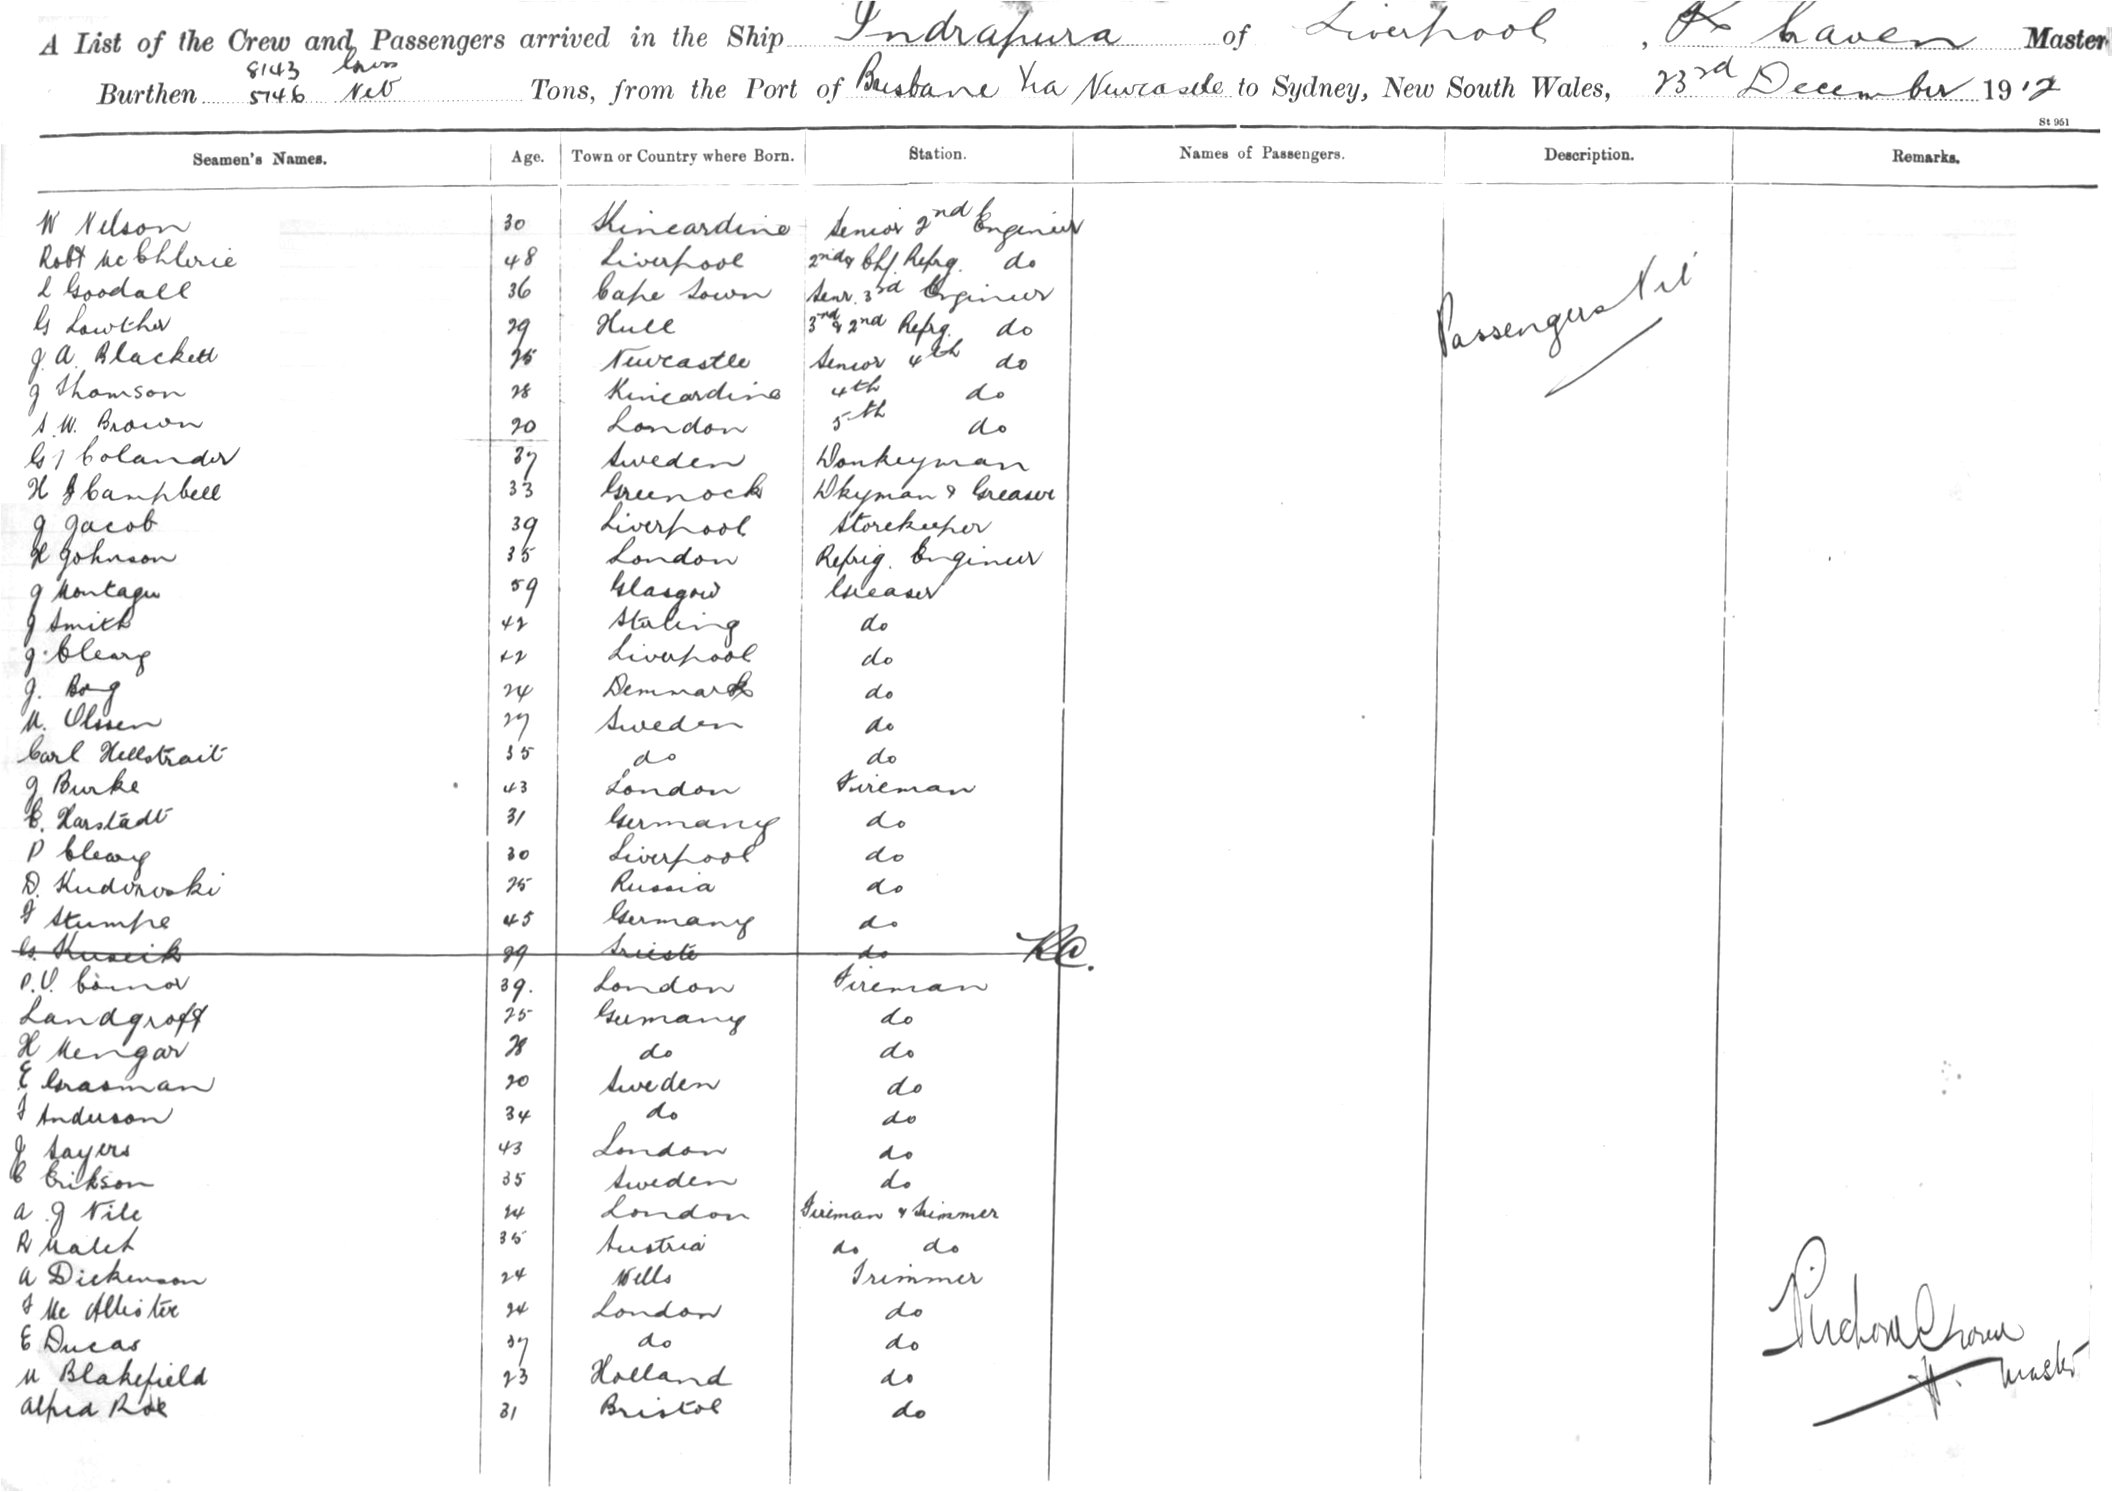 A List of the Crew and Passengers arrived in the Ship Indrapura of Liverpool, Master
Burthen 8143 Gross 5146 Net Tons, from the Port of Brisbane Via Newcastle to Sydney, New South Wales, 23rd December 1912
St 951
Seamen's Names. Age. Town or Country where Born. Station. Names of Passengers. Description. Remarks.
W Nelson 30 Kincardine Senior 2nd Engineer
Robt 48 Liverpool 2nd & Chf. Refrg. do
L Goodall 36 Cape Town Senr. 3rd Engineer
G Lowther 29 Hull 3rd & 2nd Refrg. do
J. A. Blackett 25 Newcastle Senior 4th do
J Thomson 28 Kincardine 4th do
S. W. Brown 20 London 5th do
G J Colander 37 Sweden Donkeyman
H J Campbell 33 Greenock Dkyman & Greaser
J Jacob 39 Liverpool Storekeeper
H Johnson 35 London Refrig. Engineer
J Montague 59 Glasgow Greaser
J Smith 42 Stirling do
J. Cleary 42 Liverpool do
J. Borg 24 Denmark do
M. Olssen 27 Sweden do
Carl Hellstrait 35 do do
J Burke 43 London Fireman
C. Harstadt 31 Germany do
P Cleary 30 Liverpool do
D. Kudinoski 25 Russia do
F Stumpe 45 Germany do
G. Kuscik 29 Trieste do RC.
P. V. Connor 39. London Fireman
Landgroff 25 Germany do
H Mengar 28 do do
E Grasman 20 Sweden do
F Anderson 34 do do
J Sayers 43 London do
C Erikson 35 Sweden do
A. J Nile 24 London Fireman & Trimmer
R Malet 35 Austria do do
A Dickenson 24 Wells Trimmer
F McAllister 24 London do
E Ducas 37 do do
M Blakefield 23 Holland do
Alfred Roe 31 Bristol do
Passengers Nil
Master